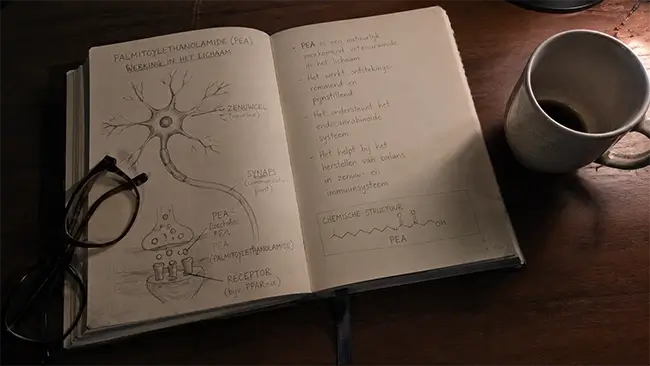 PALMITOYLETHANOLAMIDE (PEA)
WERKING IN HET LICHAAM
ZENUWCEL
SYNAPS
PEA -
PEA
(PALMITOYLETHANOLAMIDE)
RECEPTOR
(bijv. PPAR-α)
- PEA is een natuurlijk
voorkomend vetzuuramide
in het lichaam
- Het werkt ontstekings-
remmend en
pijnstillend
- Het ondersteunt het
endocannabinoïde
systeem
- Het helpt bij het
herstellen van balans
in zenuw- en
immuunsysteem
CHEMISCHE STRUCTUUR
OH
PEA